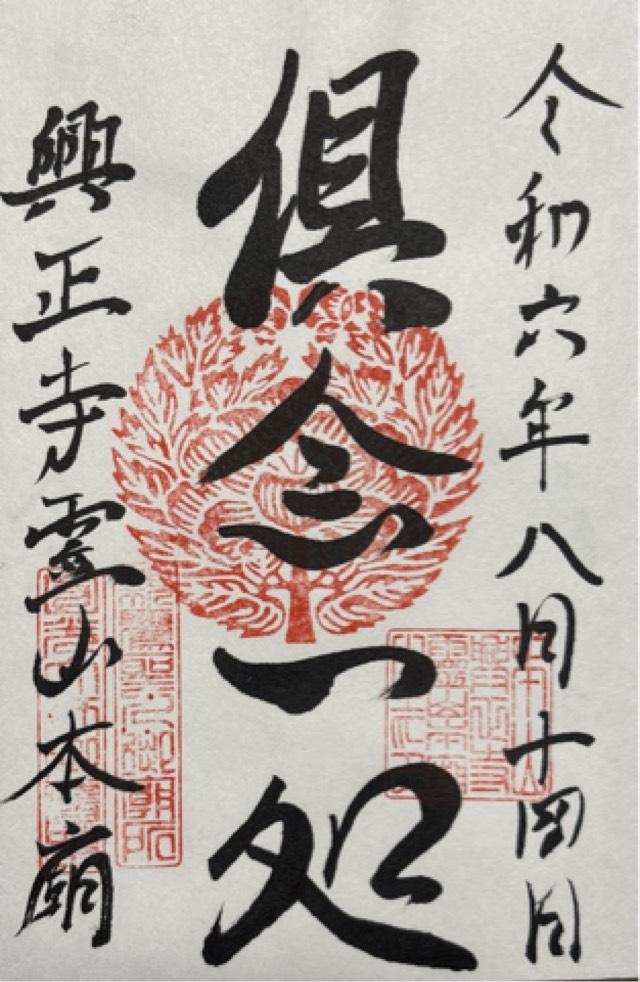 令和六年八月十四日
俱念一処
興正寺霊山本廟